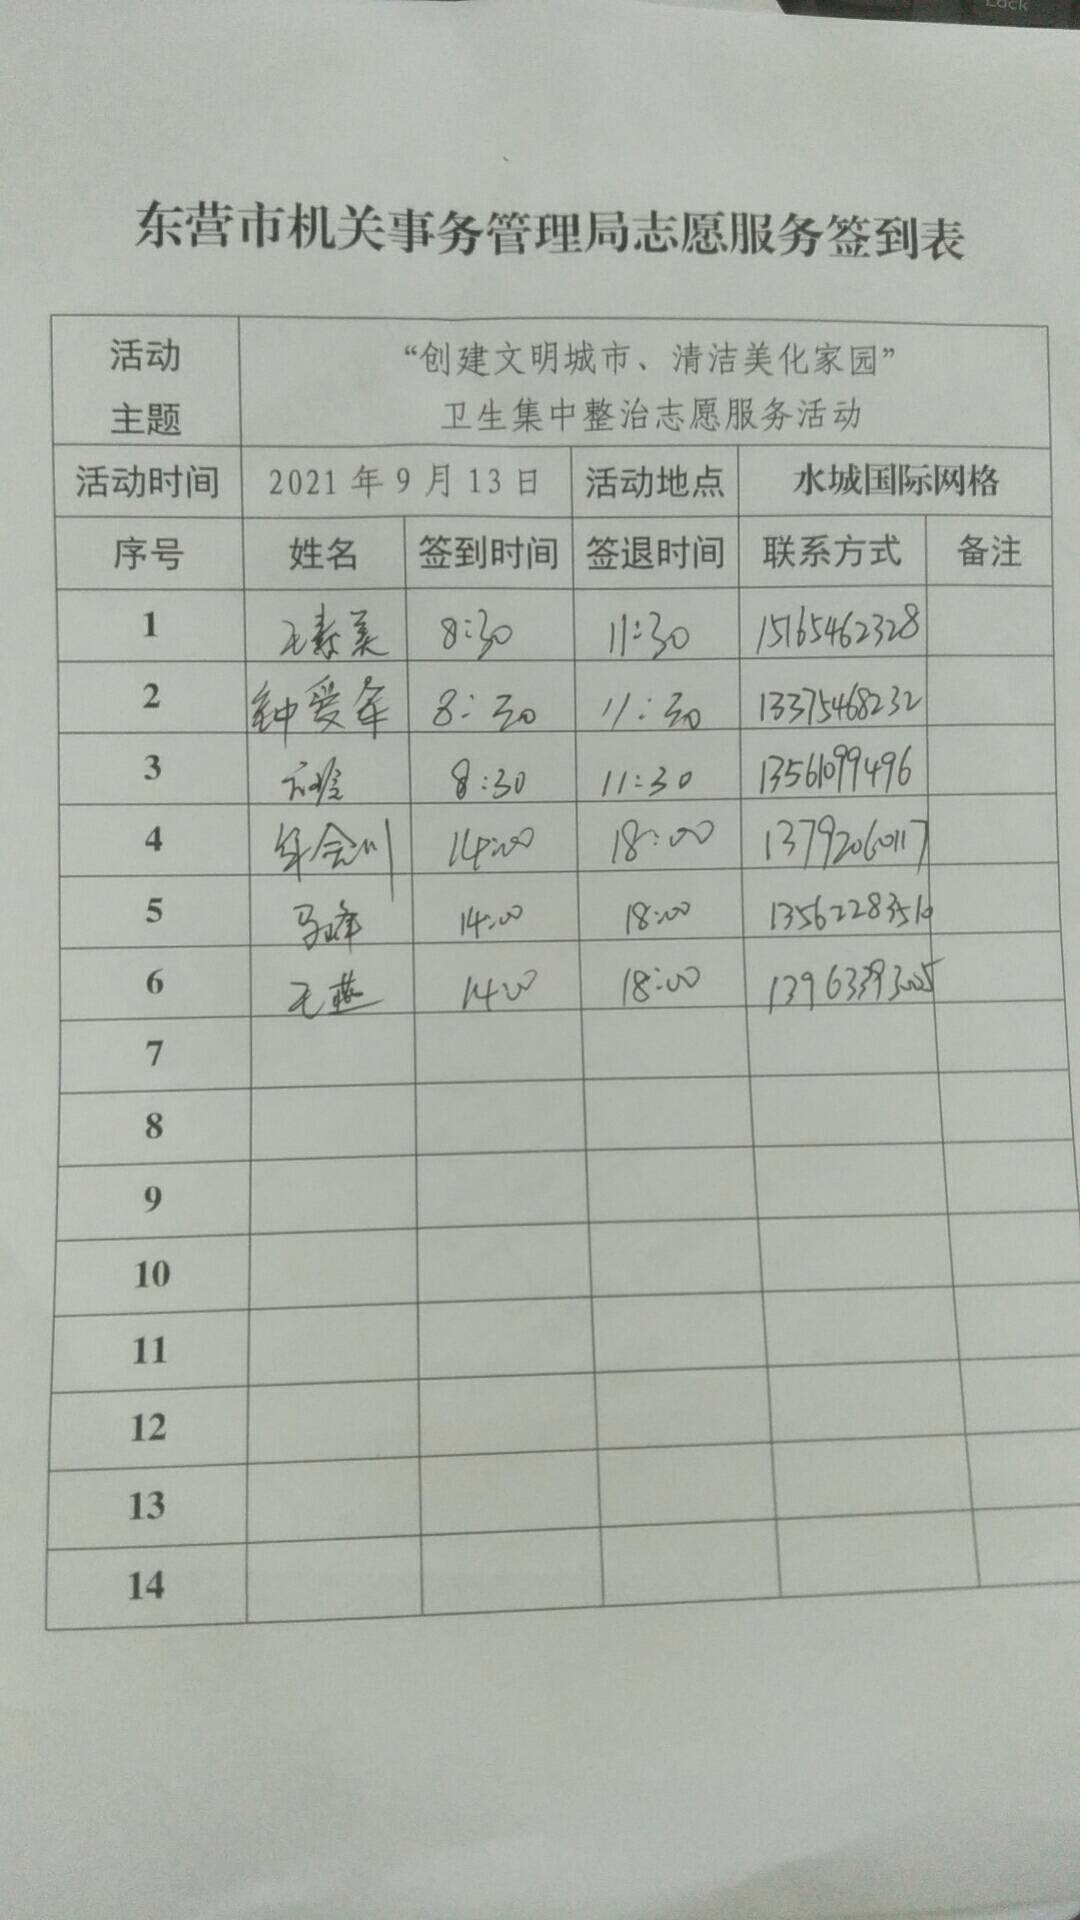 Lock
东营市机关事务管理局志愿服务签到表
活动主题 “创建文明城市、清洁美化家园”
卫生集中整治志愿服务活动
活动时间 2021年9月13日 活动地点 水城国际网格
序号 姓名 签到时间 签退时间 联系方式 备注
1 王素美 8:30 11:30 15165462328
2 钟爱军 8:30 11:30 13375468232
3 8:30 11:30 13561099496
4 年会川 14:00 18:00 13792060117
5 马峰 14:00 18:00 13562283510
6 王燕 14:00 18:00 13963393005
7
8
9
10
11
12
13
14